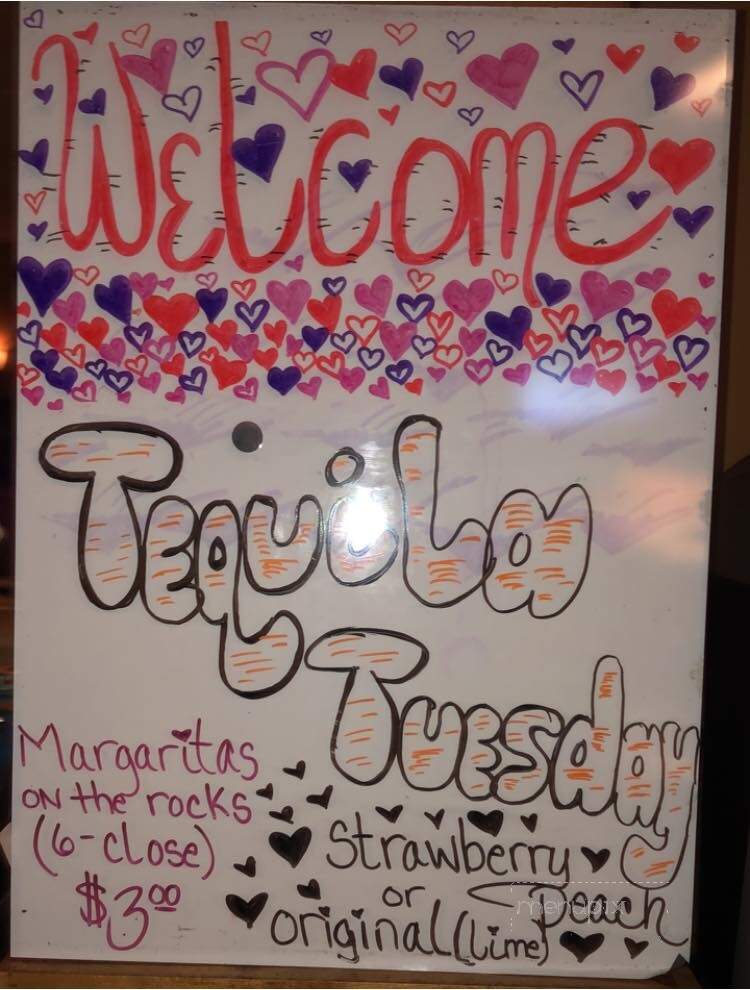 Welcome
Tequila
Tuesday
Margaritas
on the rocks
(6-close)
$3.00
Strawberry
or peach
original (Lime)
menupix